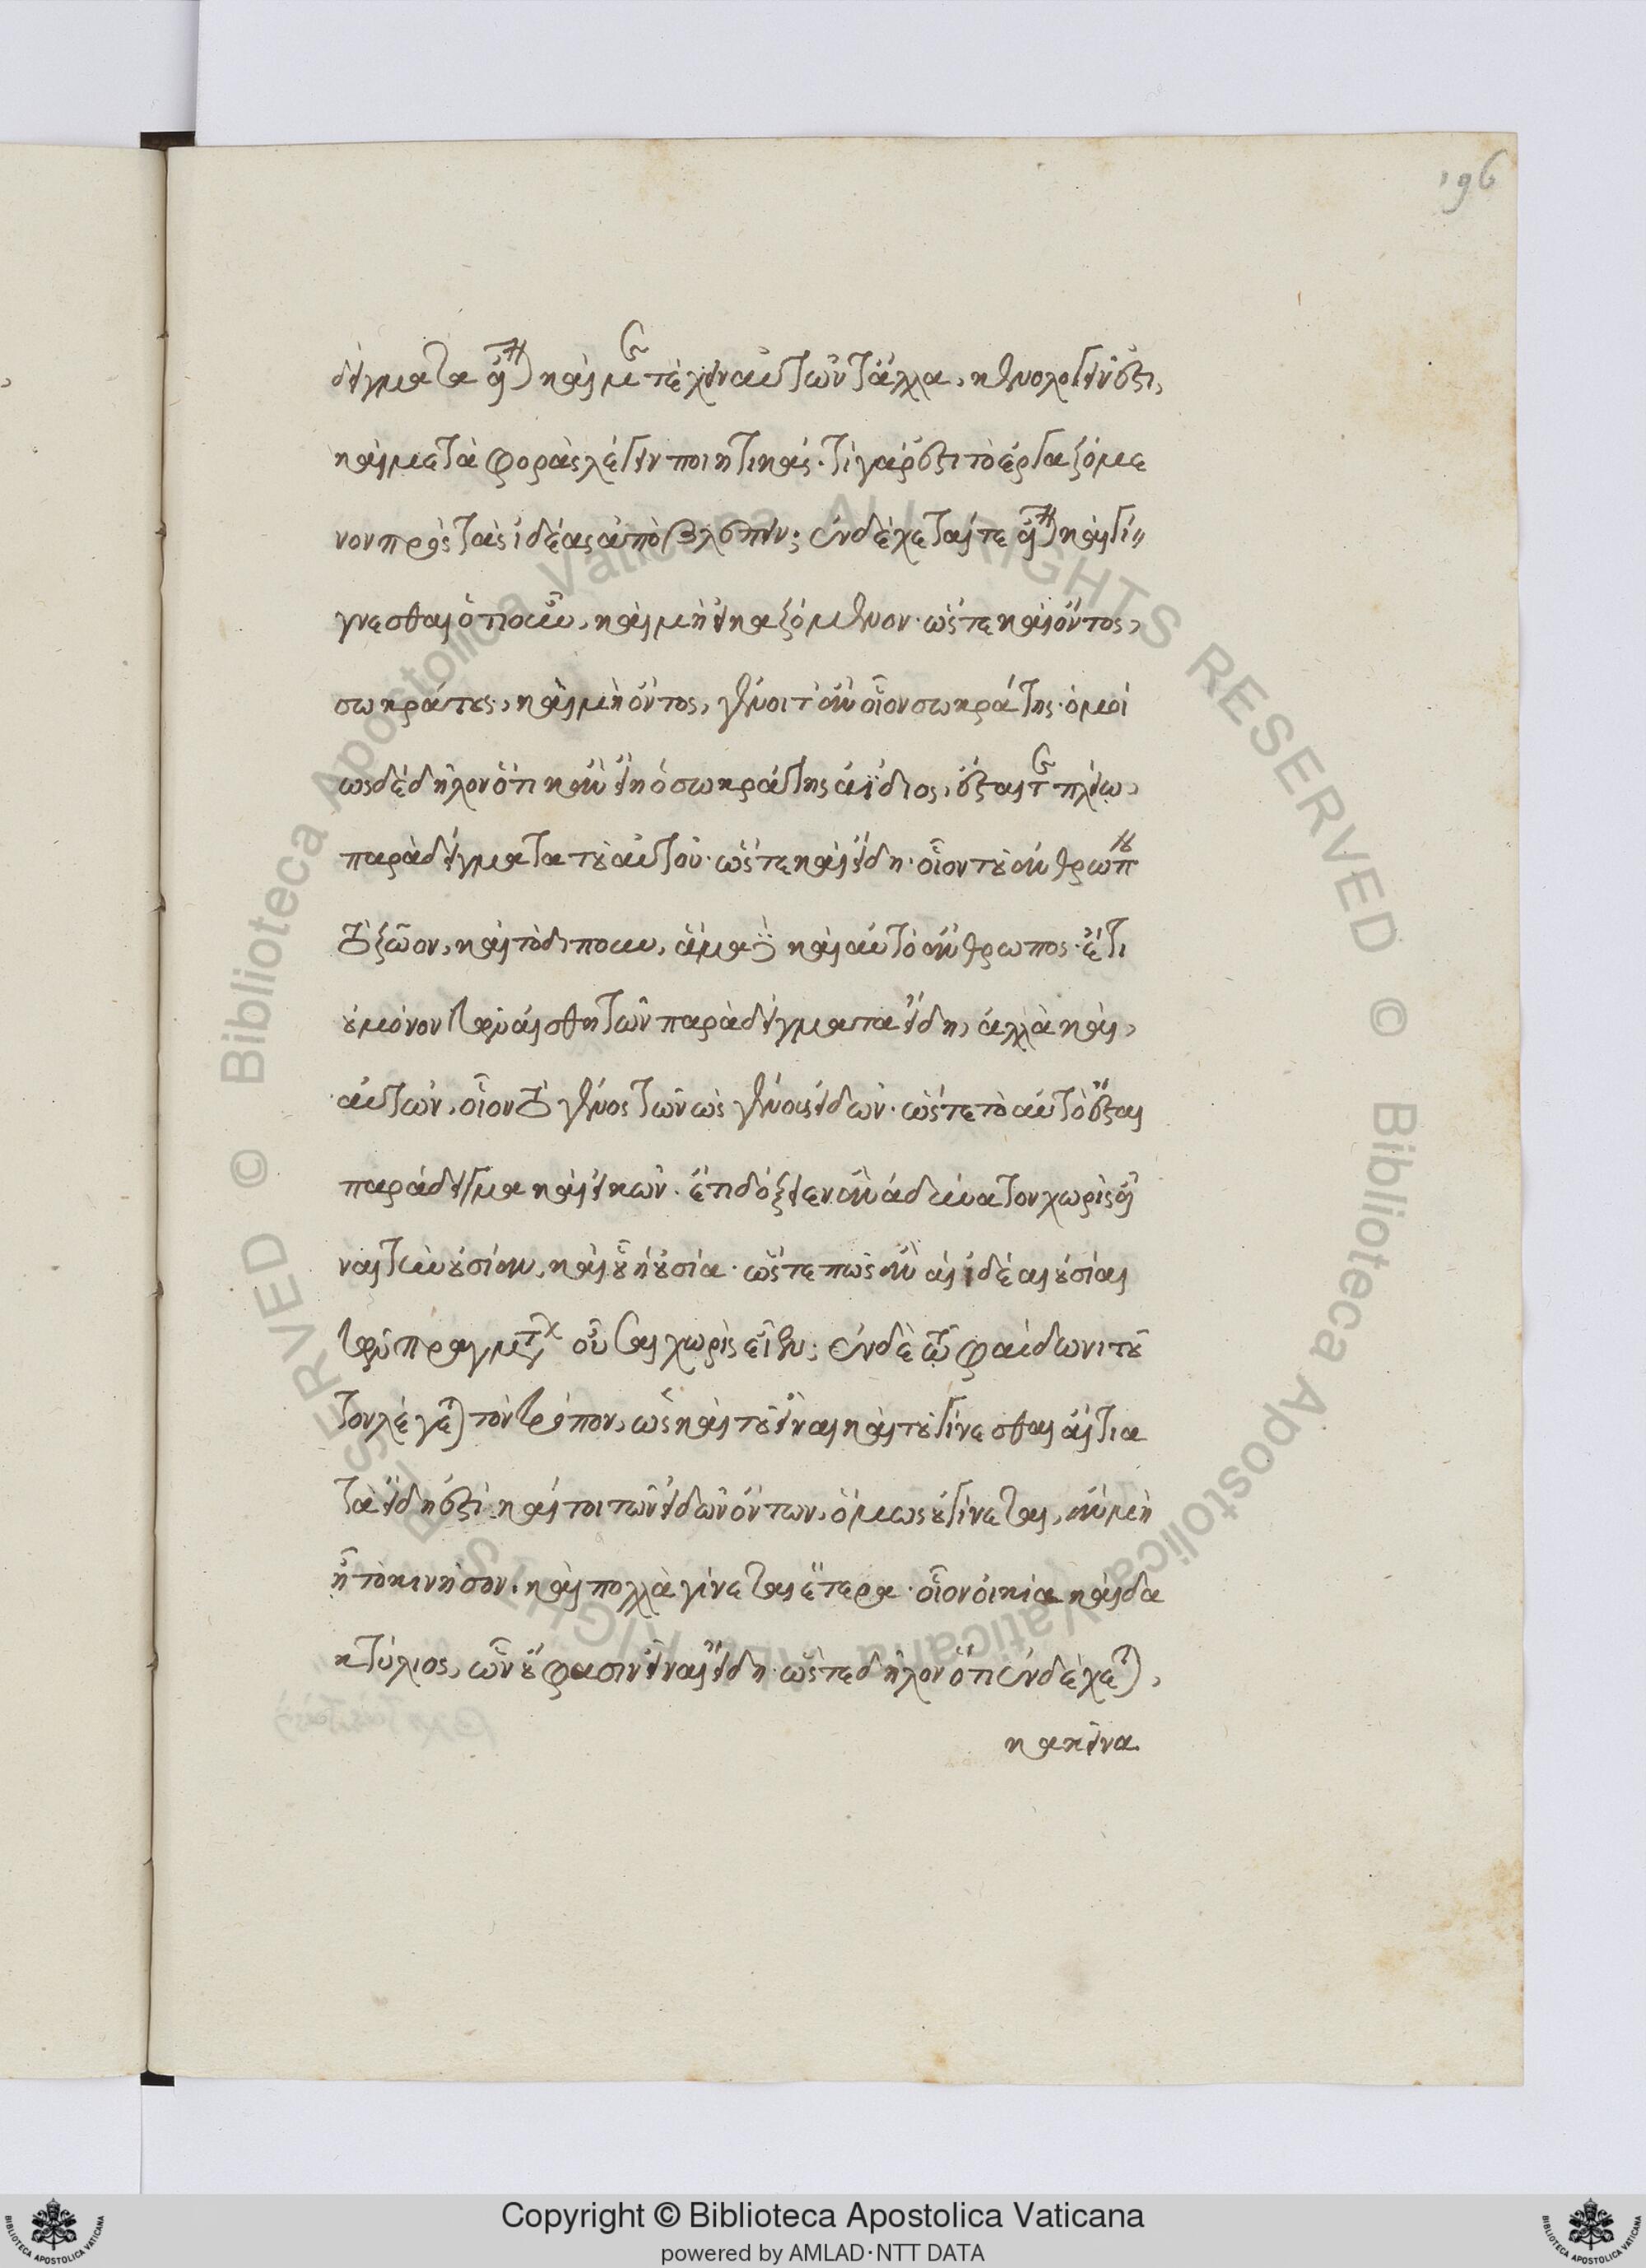 196
δείγματα εἶναι καὶ μετέχειν αὐτῶν τἆλλα, κενολογεῖν ἐστι,
καὶ μεταφορὰς λέγειν ποιητικάς. τί γάρ ἐστι τὸ ἐργαζόμε
νον πρὸς τὰς ἰδέας ἀποβλέπειν; ἐνδέχεταί τε εἶναι καὶ γί
γνεσθαι ὁτιοῦν, καὶ μὴ εἰκαζόμενον. ὥστε καὶ ὄντος,
σωκράτους, καὶ μὴ ὄντος, γένοιτ' ἂν οἷον σωκράτης. ὁμοί
ως δὲ δῆλον ὅτι κἂν εἴη ὁ σωκράτης ἀΐδιος, ἔσται τε πλείω,
παραδείγματα τοῦ αὐτοῦ. ὥστε καὶ εἴδη. οἷον τοῦ ἀνθρώπου
τὸ ζῶον, καὶ τὸ δίπουν, ἅμα δὲ καὶ αὐτὸ ἄνθρωπος. ἔτι
οὐ μόνον τῶν αἰσθητῶν παραδείγματα εἴδη, ἀλλὰ καὶ,
αὐτῶν, οἷον τὸ γένος τῶν ὡς γένους εἰδῶν. ὥστε τὸ αὐτὸ ἔσται
παράδειγμα καὶ εἰκών. ἔτι δόξειεν ἂν ἀδύνατον χωρὶς εἶ
ναι τὴν οὐσίαν, καὶ οὗ ἡ οὐσία. ὥστε πῶς ἂν αἱ ἰδέαι οὐσίαι
τῶν πραγμάτων οὖσαι χωρὶς εἶεν; ἐν δὲ τῷ φαίδωνι τοῦ
τον λέγεται τὸν τρόπον, ὡς καὶ τοῦ εἶναι καὶ τοῦ γίνεσθαι αἴτια
τὰ εἴδη ἐστί. καίτοι τῶν εἰδῶν ὄντων, ὅμως οὐ γίνεται, ἂν μὴ
ᾖ τὸ κινῆσον. καὶ πολλὰ γίνεται ἕτερα. οἷον οἰκία καὶ δα
κτύλιος, ὧν οὔ φασιν εἶναι εἴδη. ὥστε δῆλον ὅτι ἐνδέχεται,
κακεῖνα
Copyright © Biblioteca Apostolica Vaticana
powered by AMLAD·NTT DATA